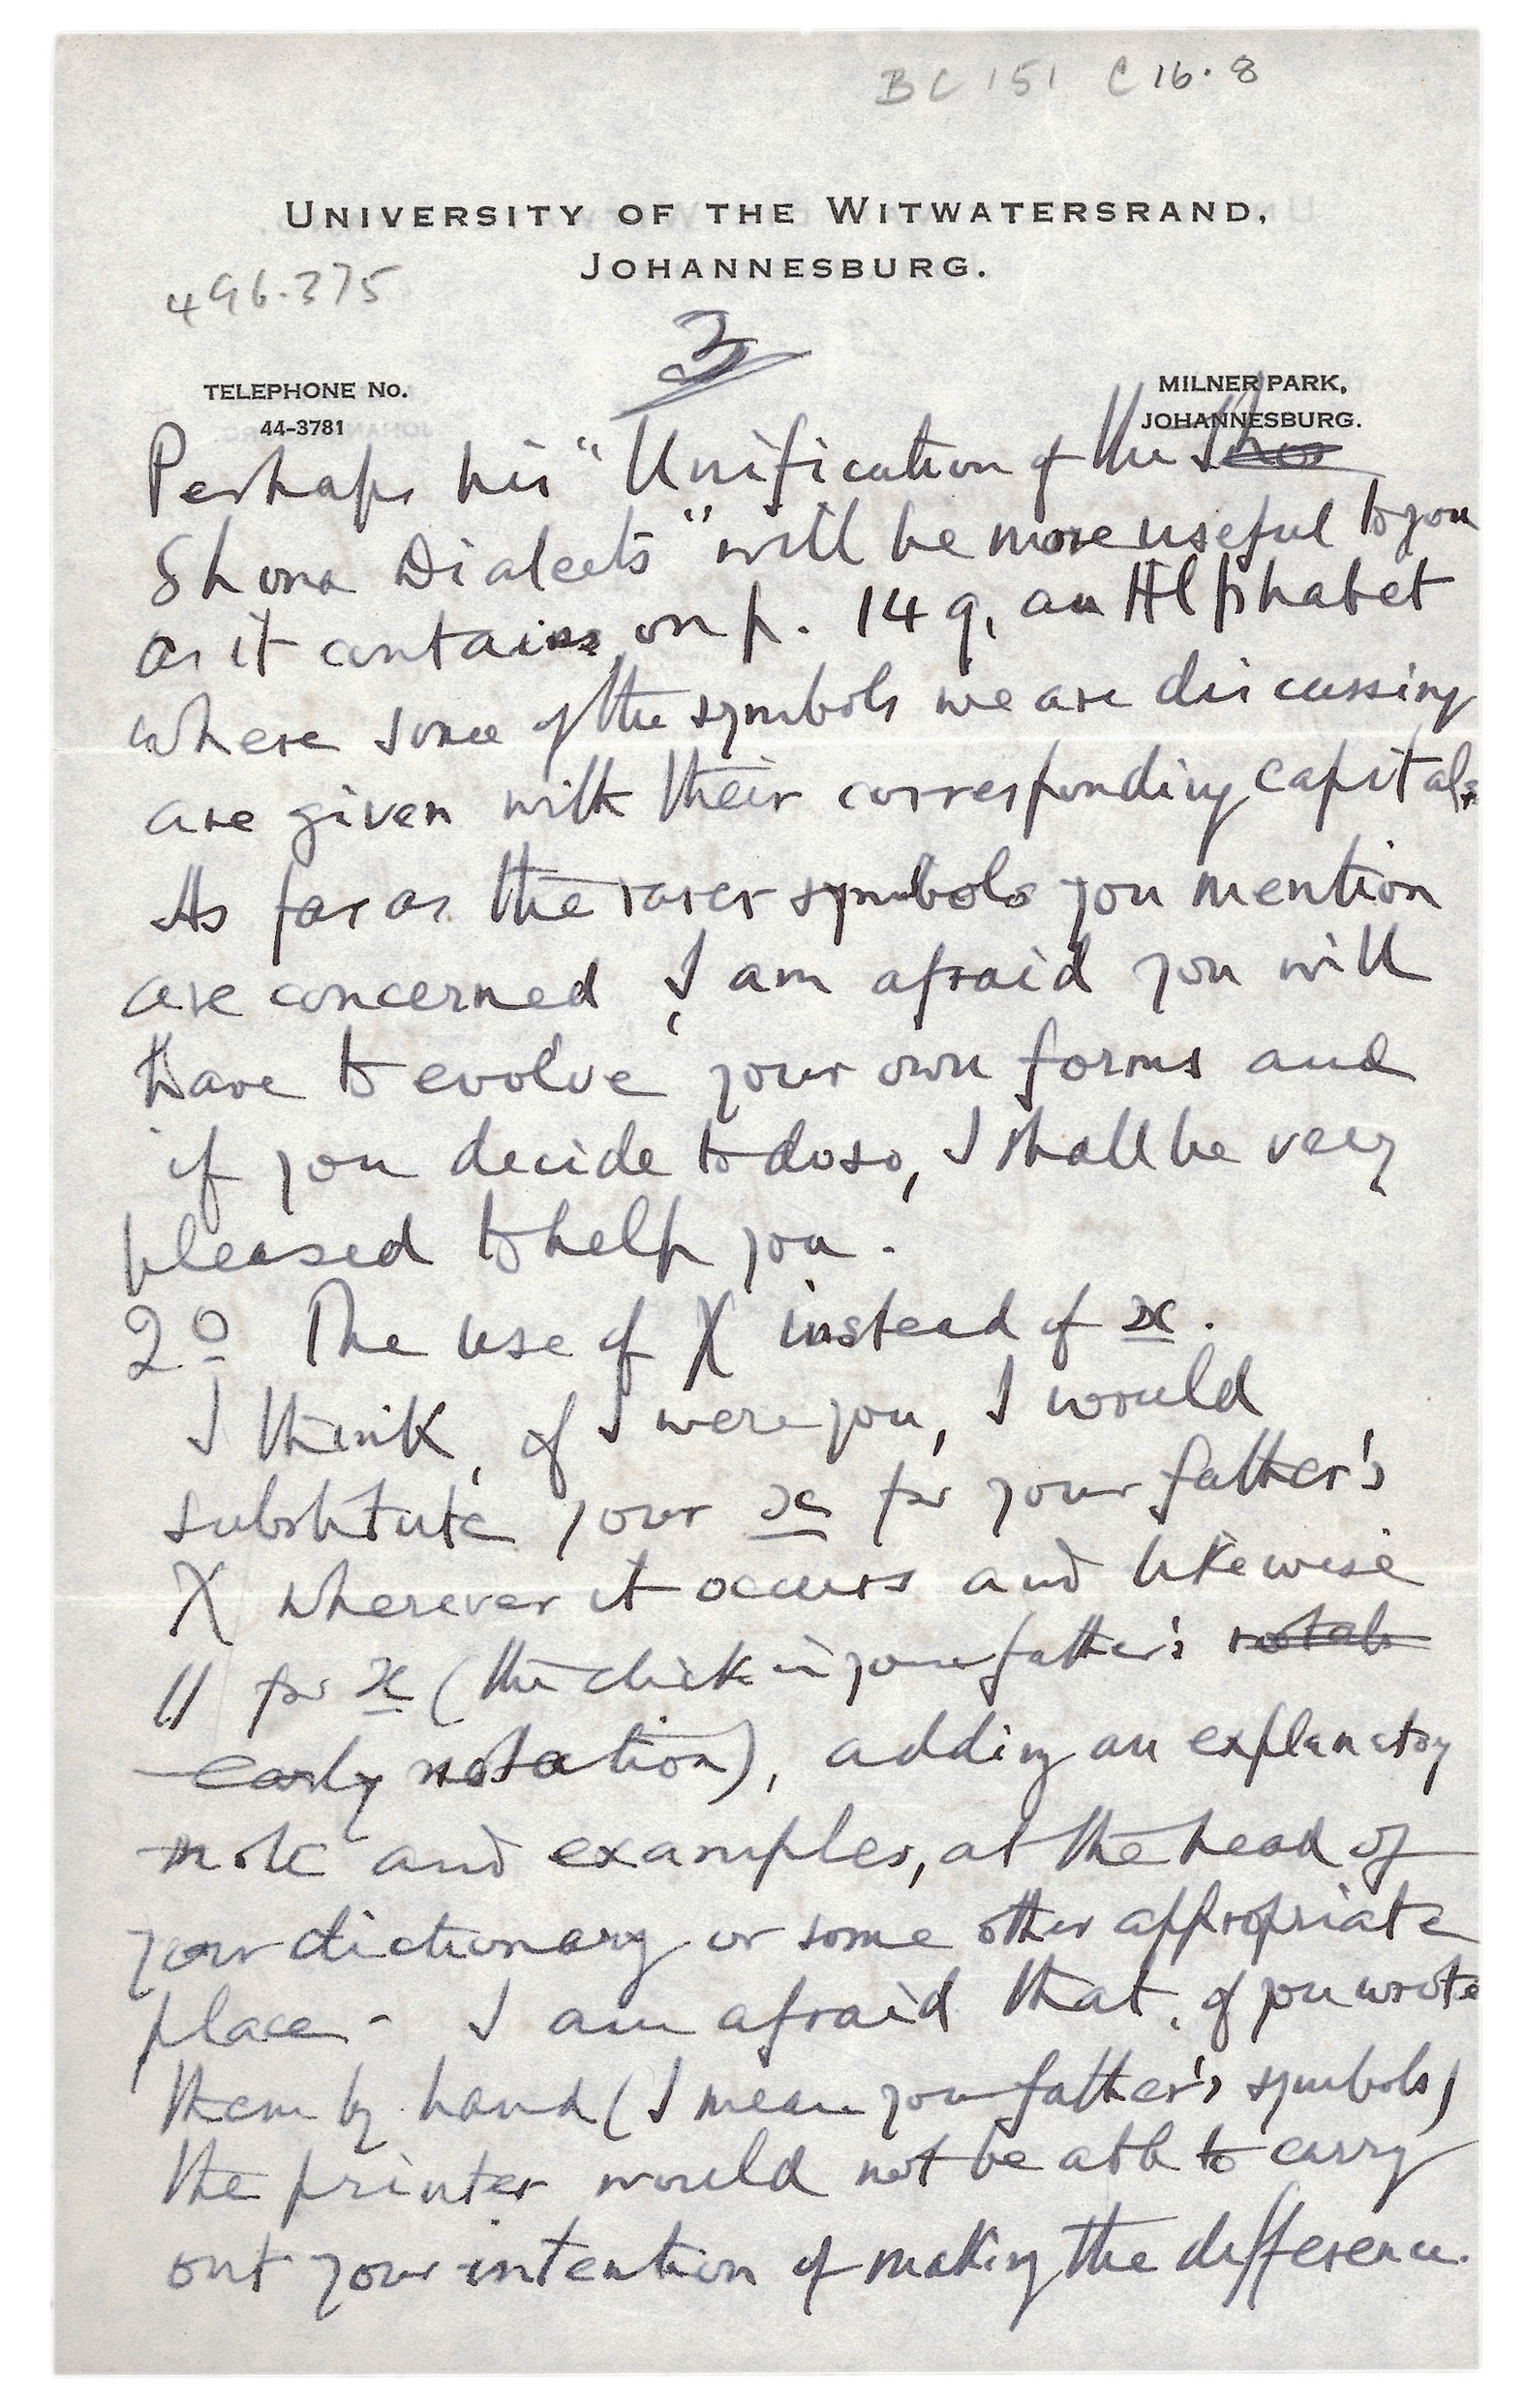 BC 151 C 16.8
UNIVERSITY OF THE WITWATERSRAND,
JOHANNESBURG.
496.375
3
TELEPHONE No.
44-3781
MILNER PARK,
JOHANNESBURG.
Perhaps his "Unification of the Shos
Shona Dialects" will be more useful to you
as it contains, on p. 149, an Alphabet
where some of the symbols we are discussing
are given with their corresponding capitals.
As far as the rarer symbols you mention
are concerned, I am afraid you will
have to evolve your own forms and
if you decide to do so, I shall be very
pleased to help you.
2º The use of X instead of x.
I think, if I were you, I would
substitute your x for your father's
X wherever it occurs and likewise
// for x (the click in your father's notab
early notation), adding an explanatory
note and examples, at the head of
your dictionary or some other appropriate
place - I am afraid that, if you wrote
them by hand (I mean your father's symbols)
the printer would not be able to carry
out your intention of making the difference.